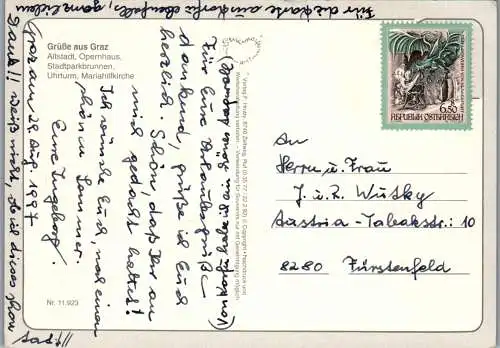 Grüße aus Graz
Altstadt, Opernhaus,
Stadtparkbrunnen,
Uhrturm, Mariahilfkirche
Für Eure Urlaubsgrüße
dankend, grüße ich Euch
herzlich. Schön, daß Ihr an
mich gedacht habt!
Ich wünsche Euch, noch einen
schönen Sommer.
Eure Ingeborg.
Graz am 29. Aug. 1997
Für die Karte aus ebenfalls, ganz lieben
Dank!! Weiß nicht, ob ich dieses schon
tat!!
Nr. 11.923
6.50
REPUBLIK ÖSTERREICH
An
Herrn u. Frau
J. u. R. Wutky
Austria-Tabakstr.: 10
8280 Fürstenfeld